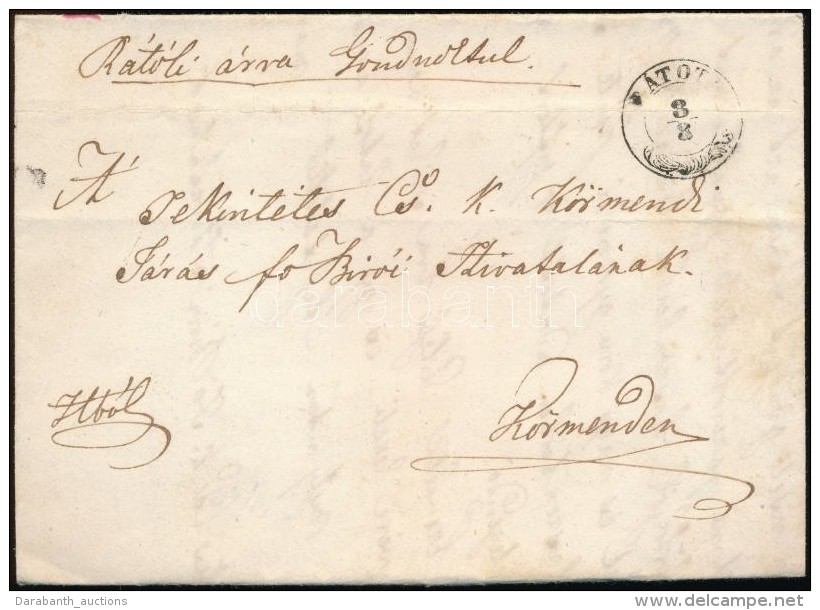 Rátóti árva Gondnoktul.
RATOT
3/8
A'
Tekintetes Cs. K. Körmendi
Járás fo Birói Hivatalának.
darabanth
Htból
Körmenden
Darabanth_auctions
delcampe.net